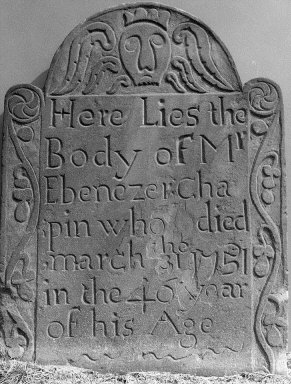 Here Lies the
Body of Mr
Ebenezer Cha
pin who died
march the 1751
in the 46 year
of his Age